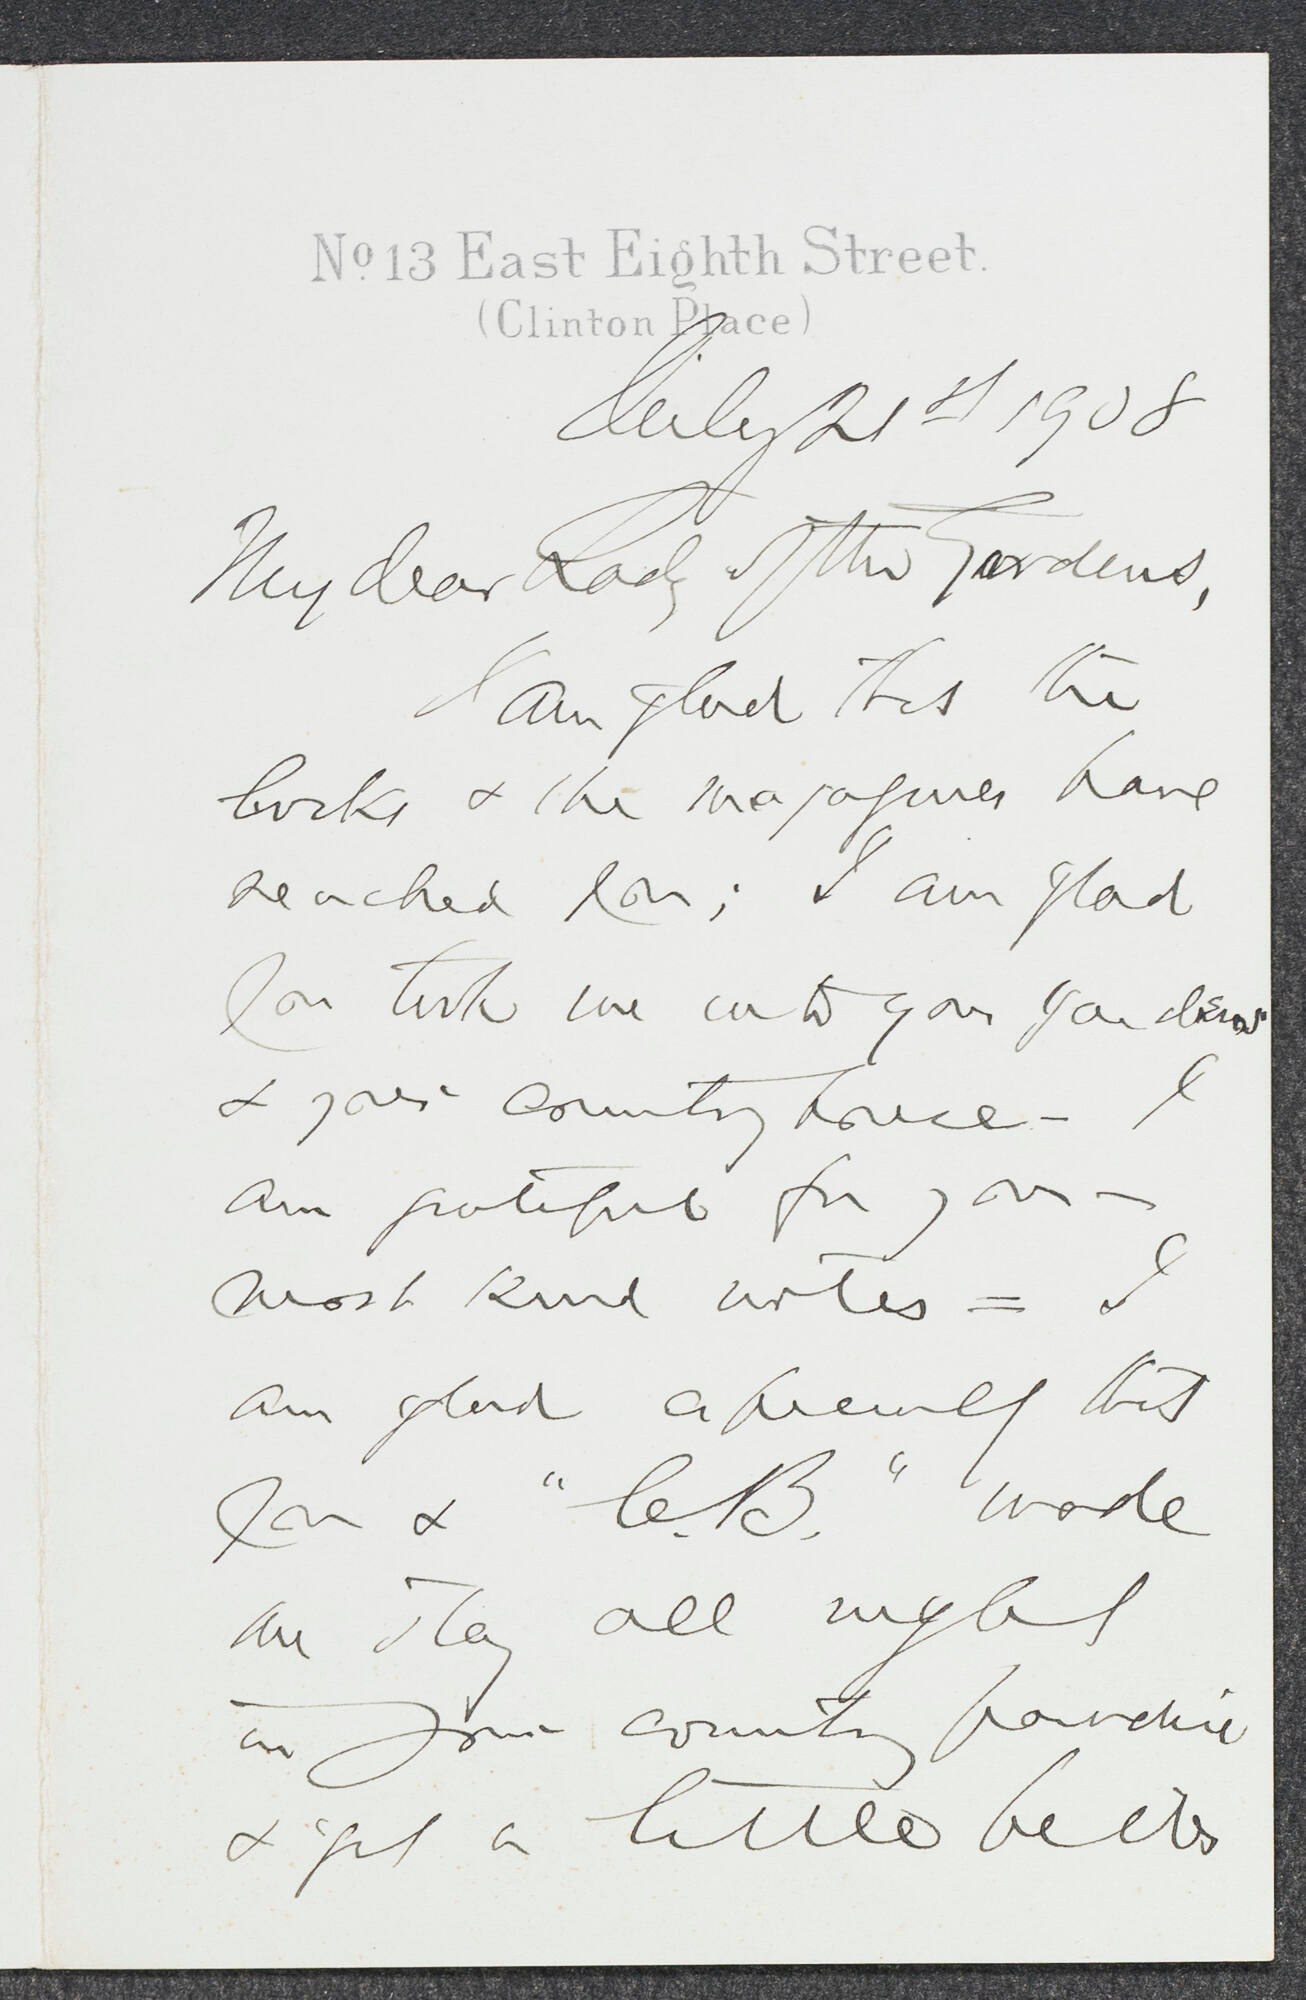 No. 13 East Eighth Street.
(Clinton Place)
July 21st 1908
My dear Lady of the Gardens,
I am glad that the
books & the magazines have
reached you; I am glad
you took me into your gardens
& your country house - I
am grateful for your
most kind notes = I
am glad especially that
you & "C.B." made
me stay all night
in your country paradise
& get a little better